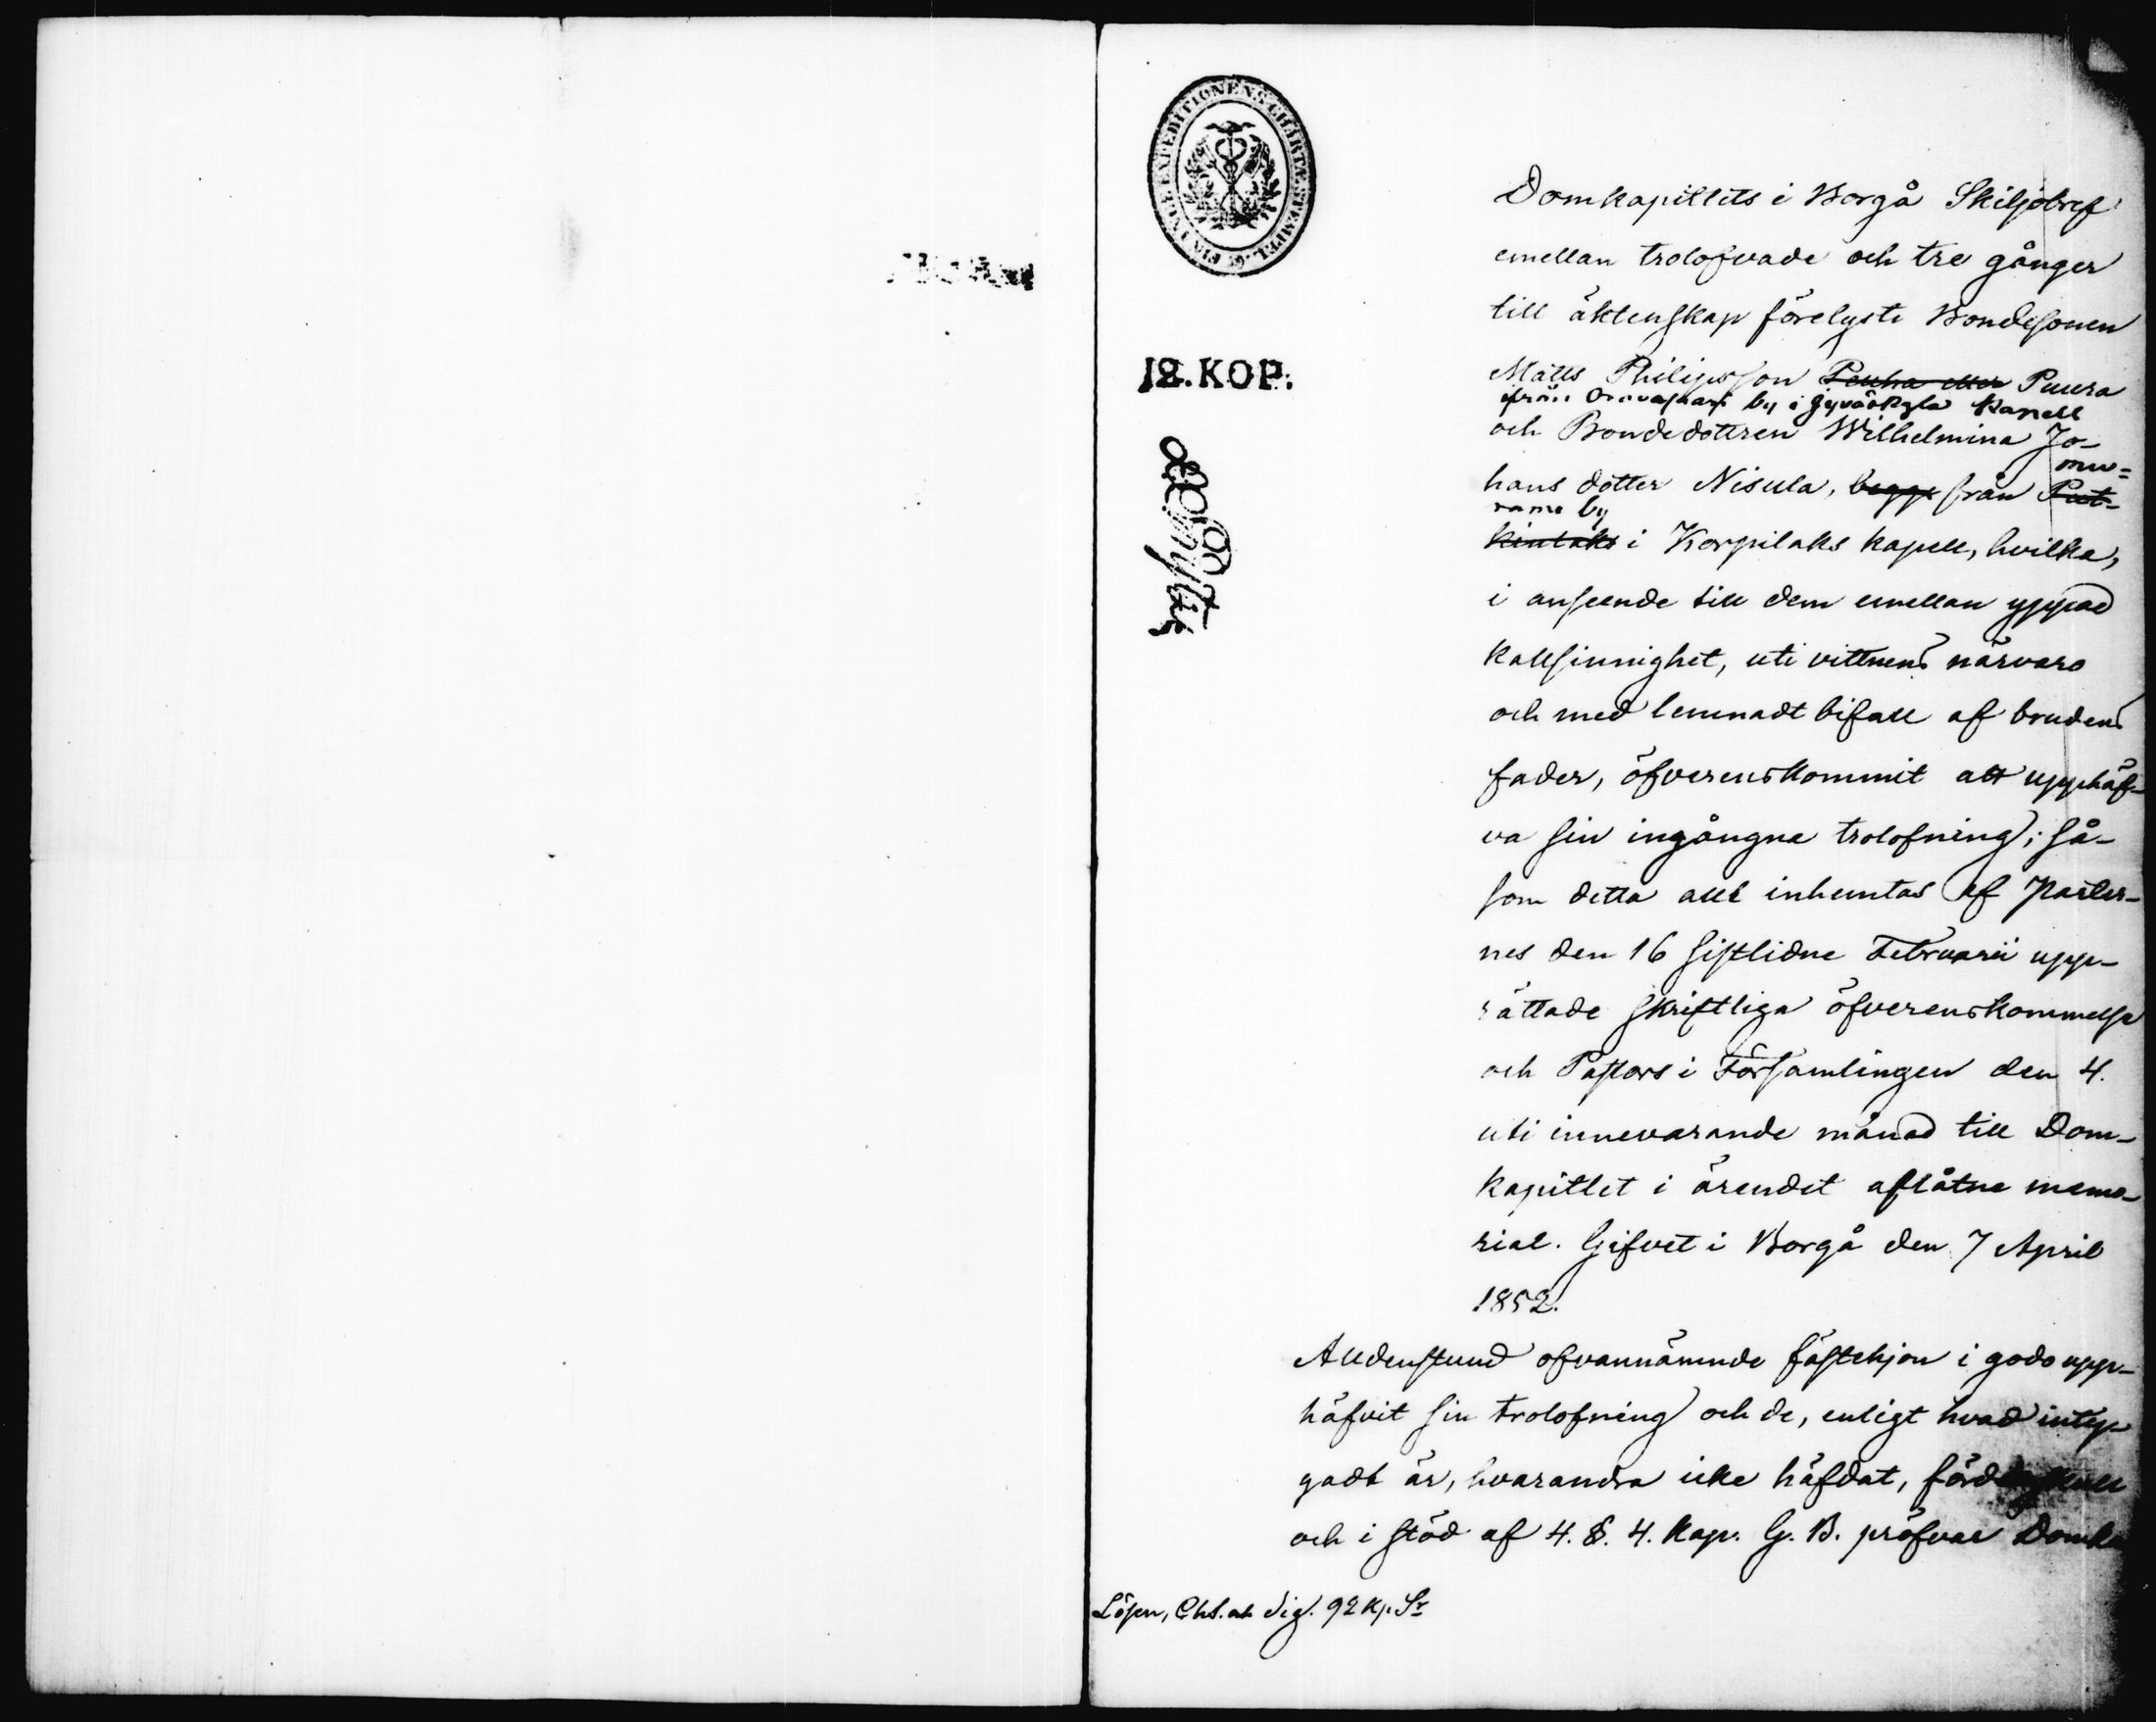 FINLANDS EXPEDITIONENS CHARTÆ STEMPEL
12. KOP.
Domkapitlets i Borgå Skiljobref
emellan trolofvade och tre gånger
till äktenskap förelyste Bondesonen
Matts Philipsson Puura
från Oravasaari by i Jyväskylä Kapell
och Bondedottren Wilhelmina Jo-
hans dotter Nisula, begge från Put-
mu-
rame by
kinlaks i Korpilaks kapell, hvilka,
i anseende till dem emellan yppad
kallsinnighet, uti vittnens närvaro
och med lemnadt bifall af brudens
fader, öfverenskommit att upphäf-
va sin ingångna trolofning; så-
som detta allt inhemtas af Parter-
nes den 16 sistlidne Februarii upp-
rättade skriftliga öfverenskommelse
och Pastors i Församlingen den 4.
uti innevarande månad till Dom-
kapitlet i ärendet aflåtne memo-
rial. Gifvet i Borgå den 7 April
1852.
Alldenstund ofvannämnde fästehjon i godo upp-
häfvit sin trolofning och de, enligt hvad inty-
gadt är, hvarandra icke häfdat, fördenskull
och i stöd af 4. §. 4. Kap. G. B. pröfvar Domka
Lösen, Chl. och Sig. 92 Kp. Sr